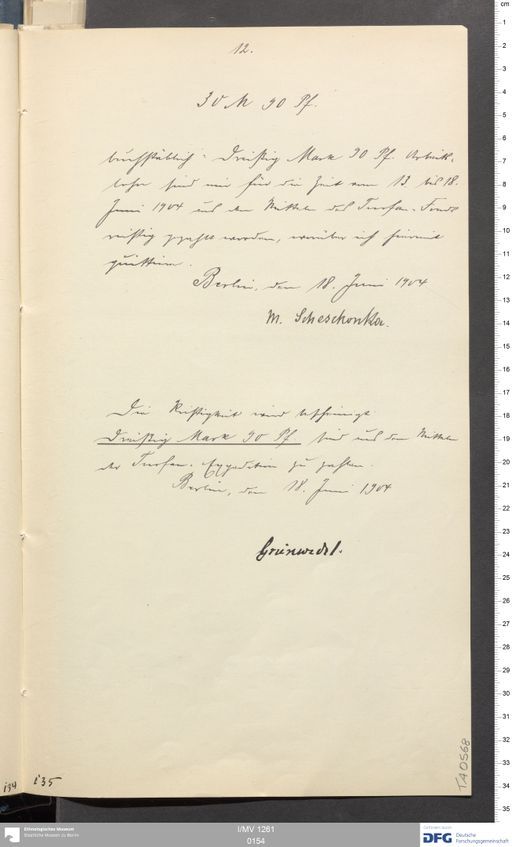 12.
30 M 30 Pf.
buchstäblich: Dreißig Mark 30 Pf. Arbeits-
lohn sind mir für die Zeit vom 13 bis 18.
Juni 1904 aus den Mitteln des Turfan-Fonds
richtig gezahlt worden, worüber ich hiermit
quittiere.
Berlin, den 18. Juni 1904
M. Scheschonka.
Die Richtigkeit wird bescheinigt
Dreißig Mark 30 Pf. sind aus den Mitteln
der Turfan-Expedition zu zahlen.
Berlin, den 18. Juni 1904
Grünwedel.
134
135
TA 0568
Ethnologisches Museum
Staatliche Museen zu Berlin
I/MV 1261
0154
Gefördert durch
DFG Deutsche
Forschungsgemeinschaft
cm
1
2
3
4
5
6
7
8
9
10
11
12
13
14
15
16
17
18
19
20
21
22
23
24
25
26
27
28
29
30
31
32
33
34
35